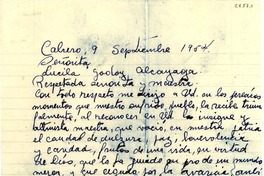 Cabrero, 9 Septiembre 1954.
Señorita
Lucila Godoy Alcayaga
Respetada señorita y maestra
Con todo respeto me dirijo a Ud. en los precisos
momentos que nuestro pueblo, la recibe triun
falmente, al reconocer en Ud. la insigne y
altruista maestra, que nació, en nuestra patria
el caudal de dulzura, paz, benevolencia
y caridad, frutos de una vida, en virtud
de Dios, que la ha guiado en pro de un mundo
mejor, a que cegado por la avaricia, anti